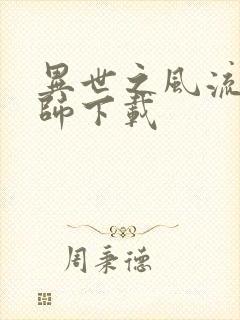 異世之風流
師下載
周秉德